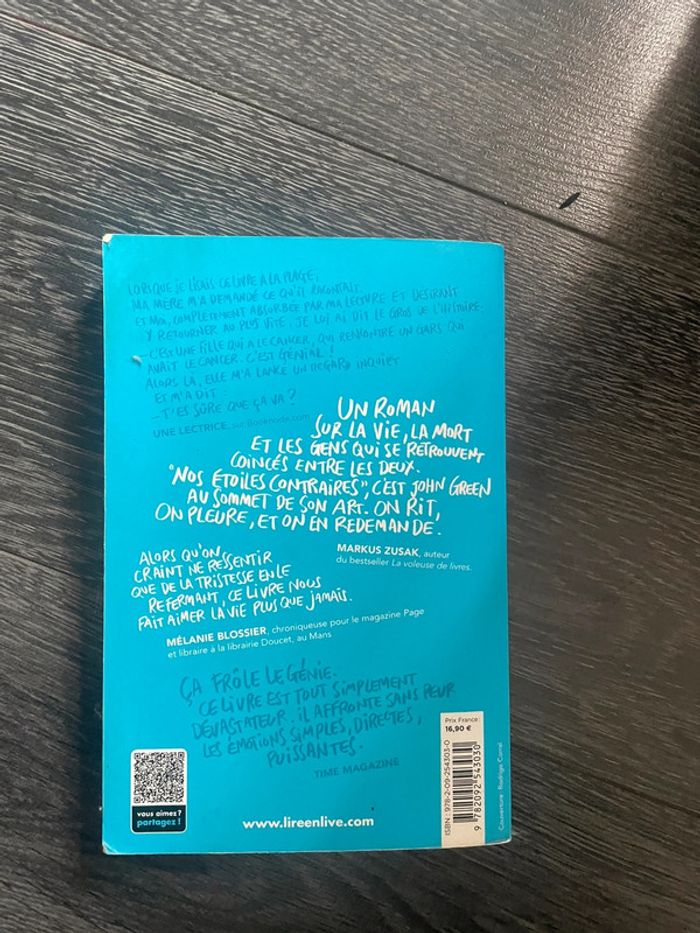 LORSQUE JE LISAIS CE LIVRE À LA PLAGE,
MA MÈRE M'A DEMANDÉ CE QU'IL RACONTAIT.
ET MOI, COMPLÈTEMENT ABSORBÉE PAR MA LECTURE ET DÉSIRANT
Y RETOURNER AU PLUS VITE, JE LUI AI DIT LE GROS DE L'HISTOIRE:
– C'EST UNE FILLE QUI A LE CANCER, QUI RENCONTRE UN GARS QUI
AVAIT LE CANCER. C'EST GÉNIAL!
ALORS LÀ, ELLE M'A LANCÉ UN REGARD INQUIET
ET M'A DIT :
– T'ES SÛRE QUE ÇA VA ?
UNE LECTRICE, sur Booknode.com
UN ROMAN
SUR LA VIE, LA MORT
ET LES GENS QUI SE RETROUVENT
COINCÉS ENTRE LES DEUX.
"NOS ÉTOILES CONTRAIRES", C'EST JOHN GREEN
AU SOMMET DE SON ART. ON RIT,
ON PLEURE, ET ON EN REDEMANDE.
MARKUS ZUSAK, auteur
du bestseller La voleuse de livres.
ALORS QU'ON
CRAINT NE RESSENTIR
QUE DE LA TRISTESSE EN LE
REFERMANT, CE LIVRE NOUS
FAIT AIMER LA VIE PLUS QUE JAMAIS.
MÉLANIE BLOSSIER, chroniqueuse pour le magazine Page
et libraire à la librairie Doucet, au Mans
ÇA FRÔLE LE GÉNIE.
CE LIVRE EST TOUT SIMPLEMENT
DÉVASTATEUR. IL AFFRONTE SANS PEUR
LES ÉMOTIONS SIMPLES, DIRECTES,
PUISSANTES.
TIME MAGAZINE
vous aimez ?
partagez !
www.lireenlive.com
Prix France :
16,90 €
ISBN : 978-2-09-254303-0
9 782092 543030
Couverture : Rodrigo Corral